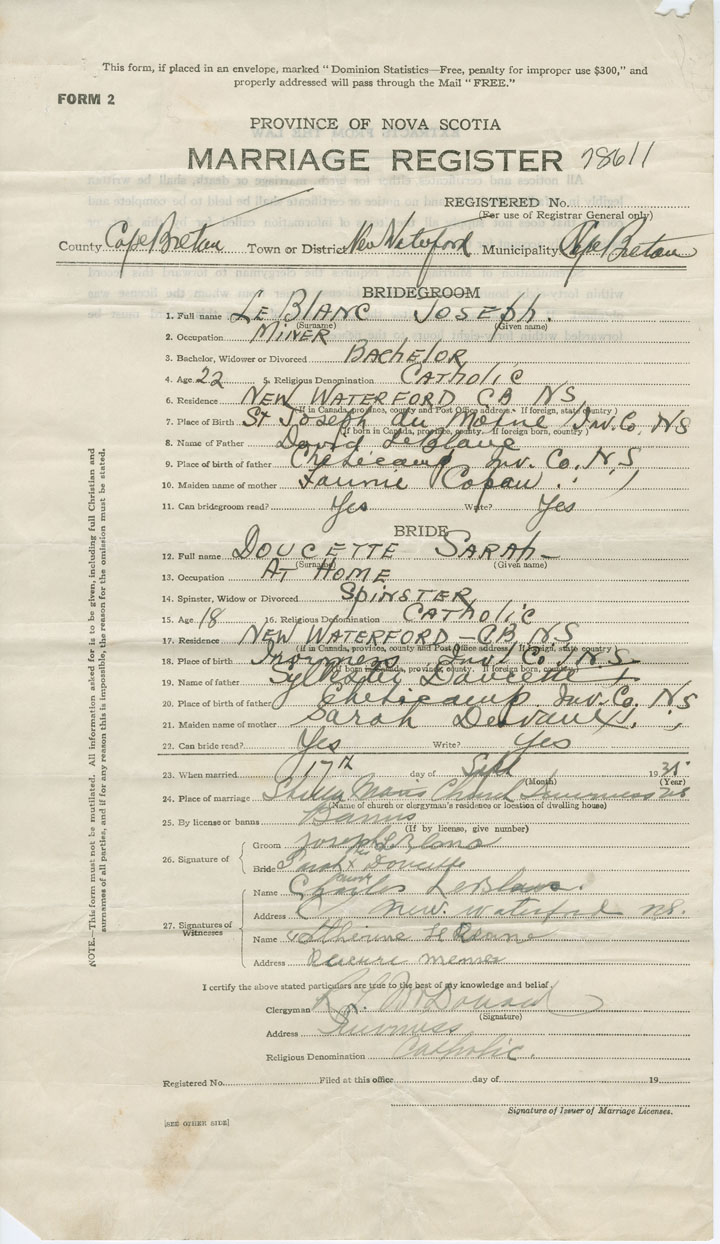 This form, if placed in an envelope, marked "Dominion Statistics—Free, penalty for improper use $300," and
properly addressed will pass through the Mail "FREE."
FORM 2
PROVINCE OF NOVA SCOTIA
MARRIAGE REGISTER 78611
REGISTERED No.
(For use of Registrar General only)
County Cape Breton Town or District New Waterford Municipality Cape Breton
BRIDEGROOM
1. Full name LE BLANC JOSEPH.
(Surname) (Given name)
2. Occupation MINER
3. Bachelor, Widower or Divorced BACHELOR
4. Age 22 5. Religious Denomination CATHOLIC
6. Residence NEW WATERFORD CB NS
(If in Canada, province, county and Post Office address. If foreign, state country)
7. Place of Birth St Joseph du Moine Inv. Co. NS
(If born in Canada, province, county. If foreign born, country)
8. Name of Father David LeBlanc
9. Place of birth of father Cheticamp Inv. Co. N.S
10. Maiden name of mother
11. Can bridegroom read? Yes Write? Yes
BRIDE
12. Full name DOUCETTE SARAH
(Surname) (Given name)
13. Occupation AT HOME
14. Spinster, Widow or Divorced SPINSTER
15. Age 18 16. Religious Denomination CATHOLIC
17. Residence NEW WATERFORD — CB NS
(If in Canada, province, county and Post Office address. If foreign, state country)
18. Place of birth Inv. Co. N.S
(If born in Canada, province, county. If foreign born, country)
19. Name of father Sylvester Doucette
20. Place of birth of father Cheticamp Inv. Co. NS
21. Maiden name of mother Sarah
22. Can bride read? Yes Write? Yes
23. When married 17th day of Sept 19
(Month) (Year)
24. Place of marriage Stella Maris Church Inverness NS
(Name of church or clergyman's residence or location of dwelling house)
25. By license or banns Banns
(If by license, give number)
26. Signature of Groom Joseph
Bride Sarah X Doucette
27. Signatures of Witnesses
Name Charles
Address New Waterford N.S.
Name
Address
I certify the above stated particulars are true to the best of my knowledge and belief
Clergyman McDonald
(Signature)
Address Inverness
Religious Denomination Catholic.
Registered No. Filed at this office day of 19
Signature of Issuer of Marriage Licenses.
[SEE OTHER SIDE]
NOTE.—This form must not be mutilated. All information asked for is to be given, including full Christian and
surnames of all parties, and if for any reason this is impossible, the reason for the omission must be stated.